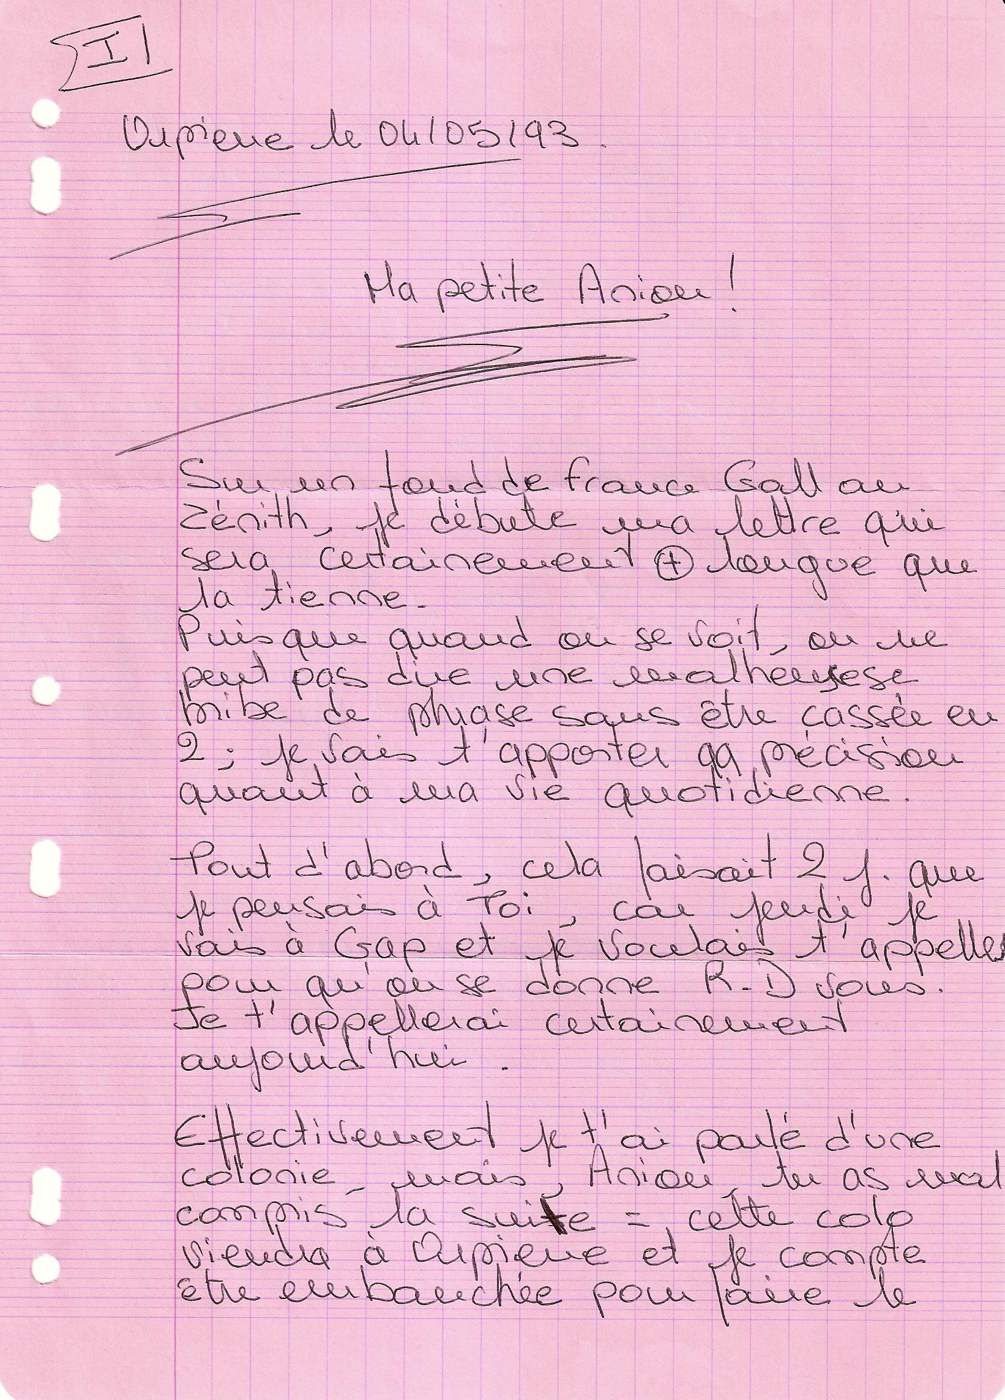 I
Orpierre le 04/05/93.
Ma petite Aniou!
Sur un fond de France Gall au
Zénith, je débute ma lettre qui
sera certainement + longue que
la tienne.
Puisque quand on se voit, on ne
peut pas dire une malheureuse
bribe de phrase sans être cassée en
2 ; je vais t'apporter qq précision
quant à ma vie quotidienne.
Tout d'abord, cela faisait 2 j. que
je pensais à Toi, car jeudi je
vais à Gap et je voulais t'appeller
pour qu'on se donne R-D vous.
Je t'appellerai certainement
aujourd'hui.
Effectivement je t'ai parlé d'une
colonie, mais, Aniou, tu as mal
compris la suite =, cette colo
viendra à Orpierre et je compte
être embauchée pour faire le